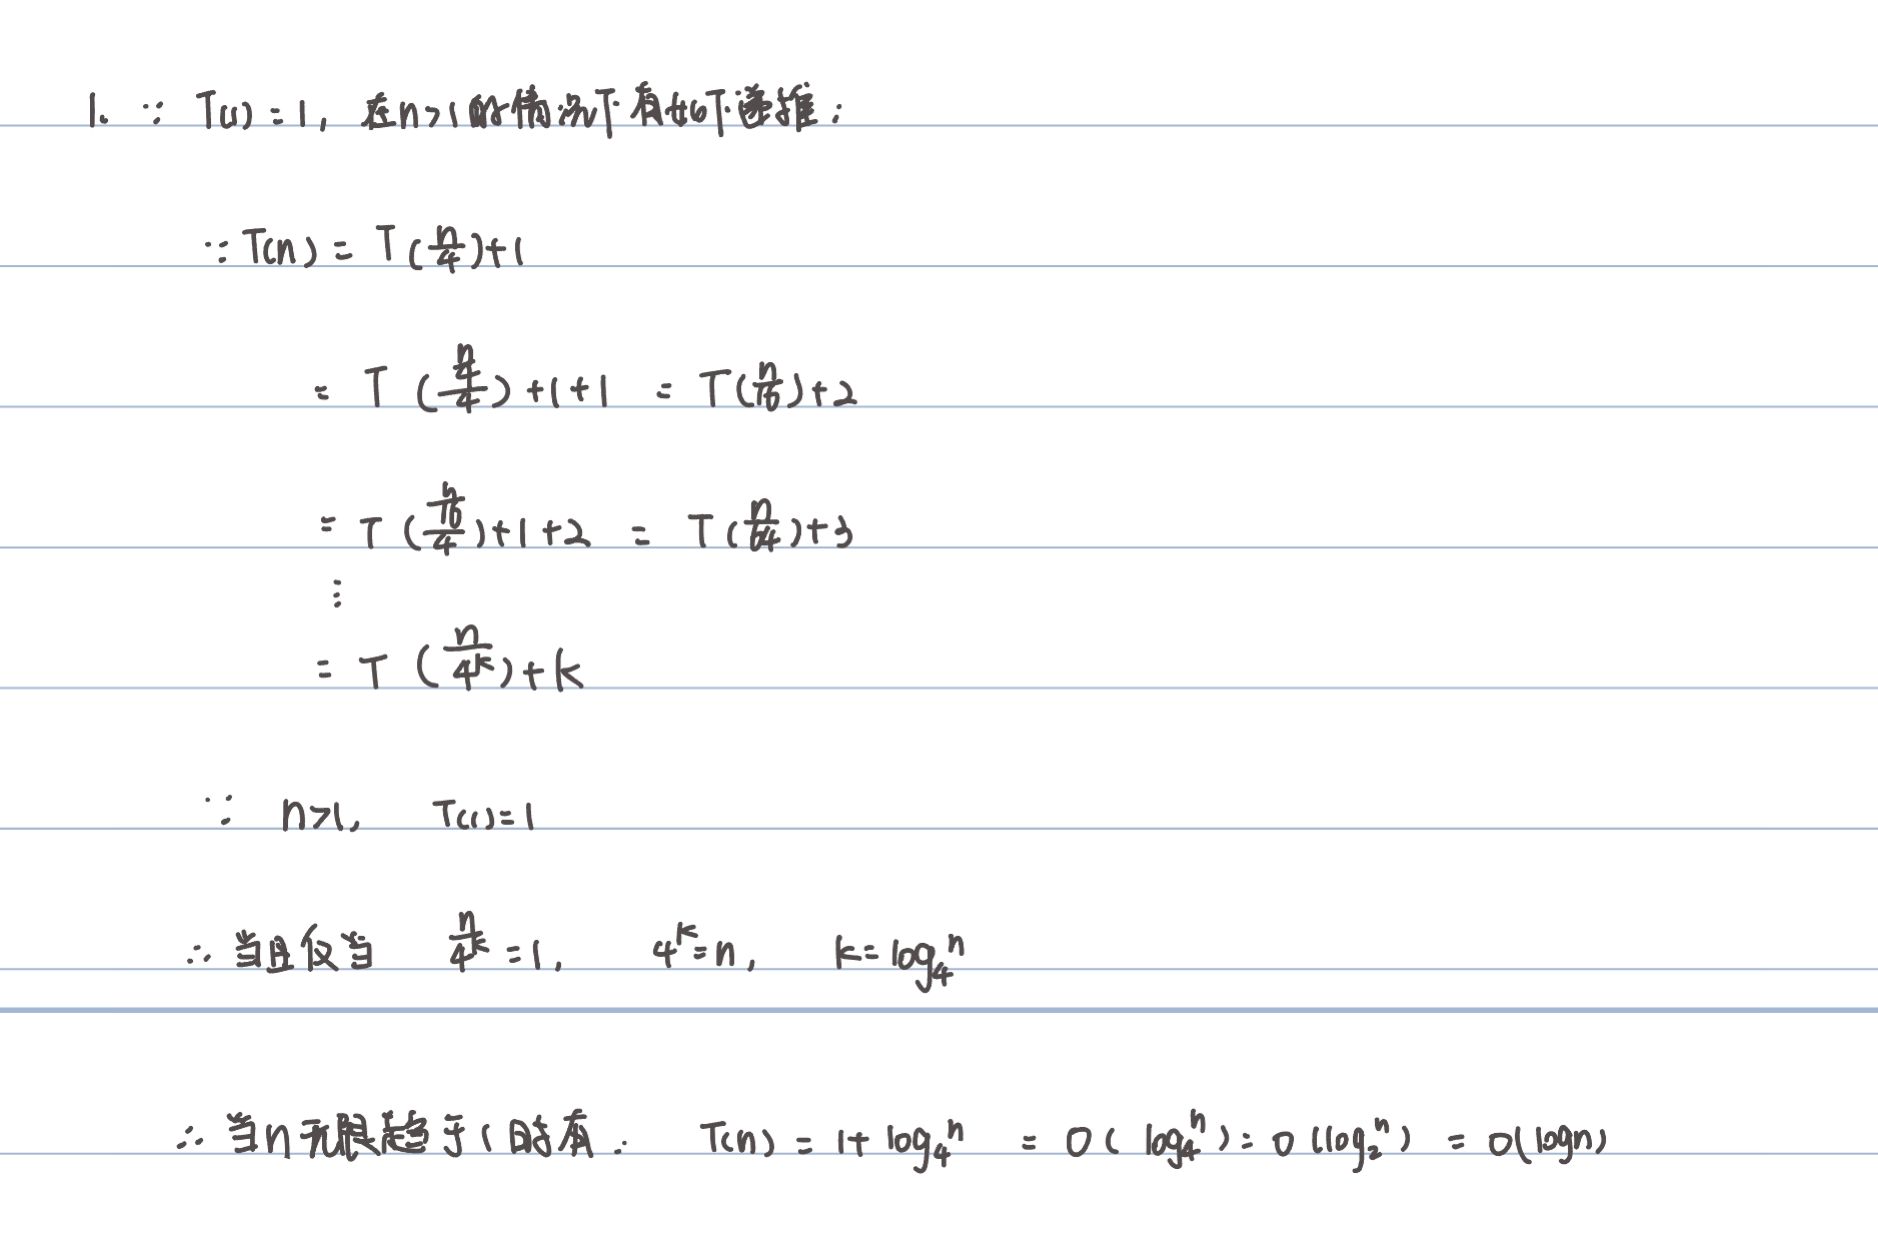 1. ∵ T(1)=1, 在n>1的情况下有如下递推:
∵ T(n) = T(n/4)+1
= T((n/4)/4)+1+1 = T(n/16)+2
= T((n/16)/4)+1+2 = T(n/64)+3
⋮
= T(n/4^k)+k
∵ n>1, T(1)=1
∴ 当且仅当 n/4^k=1, 4^k=n, k=log₄ⁿ
∴ 当n无限趋于1时有: T(n) = 1+log₄ⁿ = O(log₄ⁿ) = O(log₂ⁿ) = O(logn)